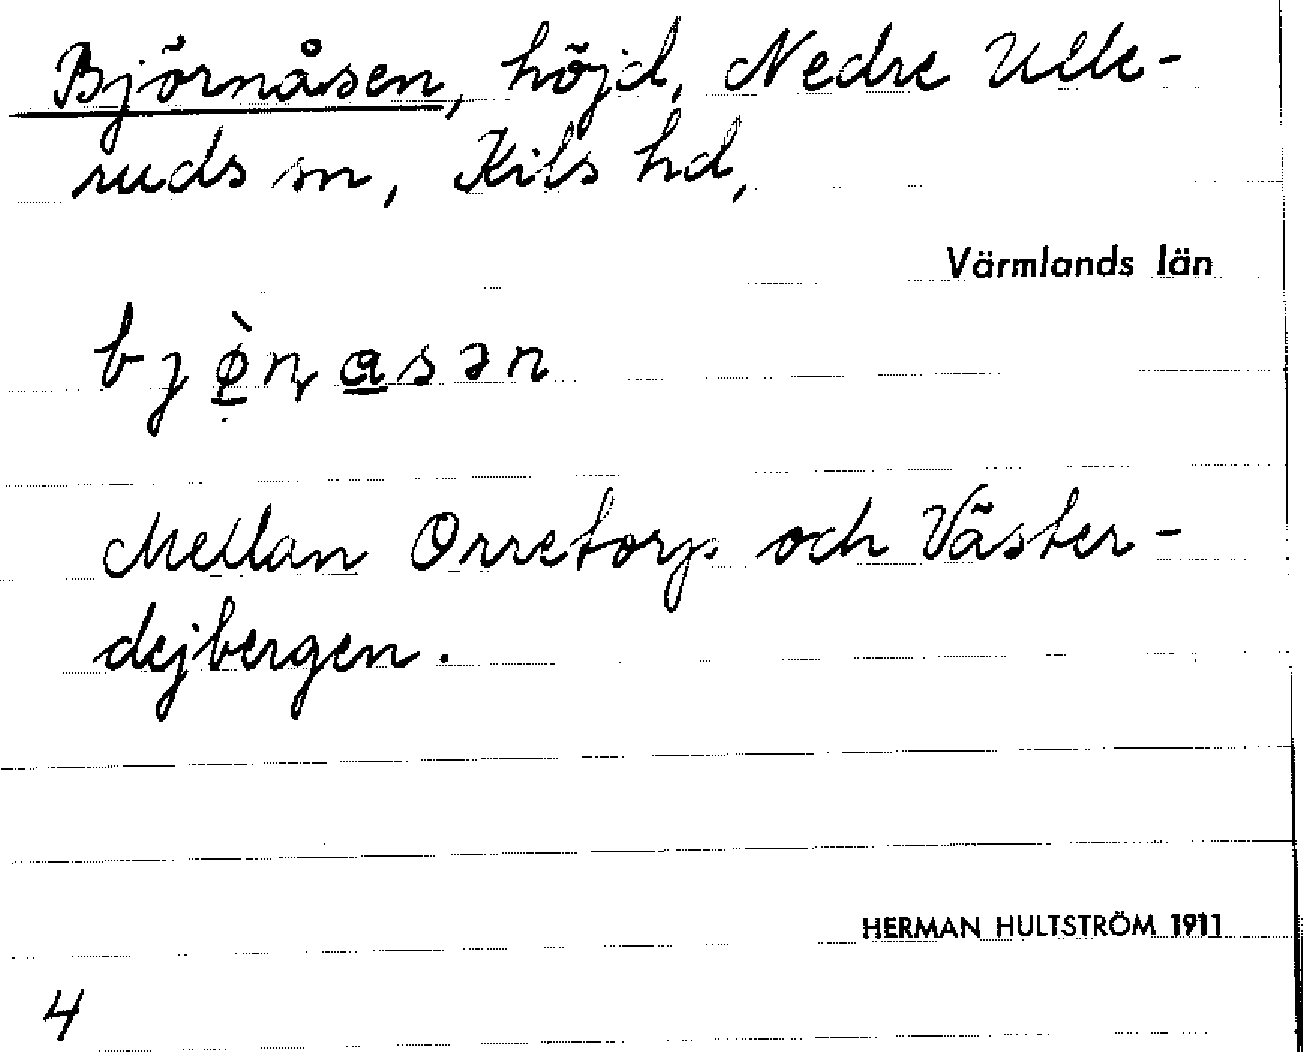 Björnåsen, höjd, Nedre Ulle-
ruds sn, Kils hd,
Värmlands län
bjø̠̀ɳɑ̠sən
Mellan Orretorp och Väster-
dejbergen.
HERMAN HULTSTRÖM 1911
4